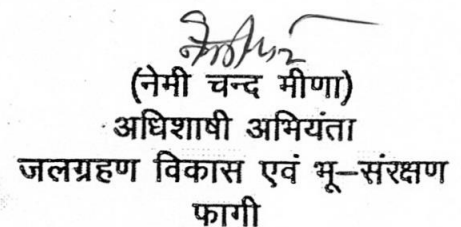 (नेमी चन्द मीणा)
अधिशाषी अभियंता
जलग्रहण विकास एवं भू–संरक्षण
फागी